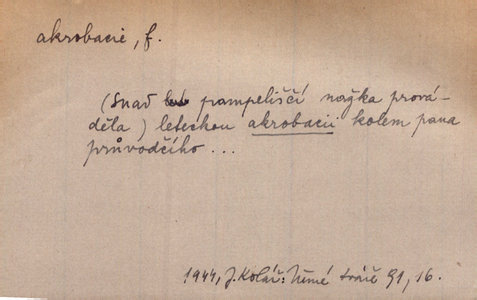 akrobacie, f.
(Snad pampeliščí nožka prová-
děla) leteckou akrobacii kolem pana
průvodčího...
1944, J. Kolář: Němé tváře 91, 16.